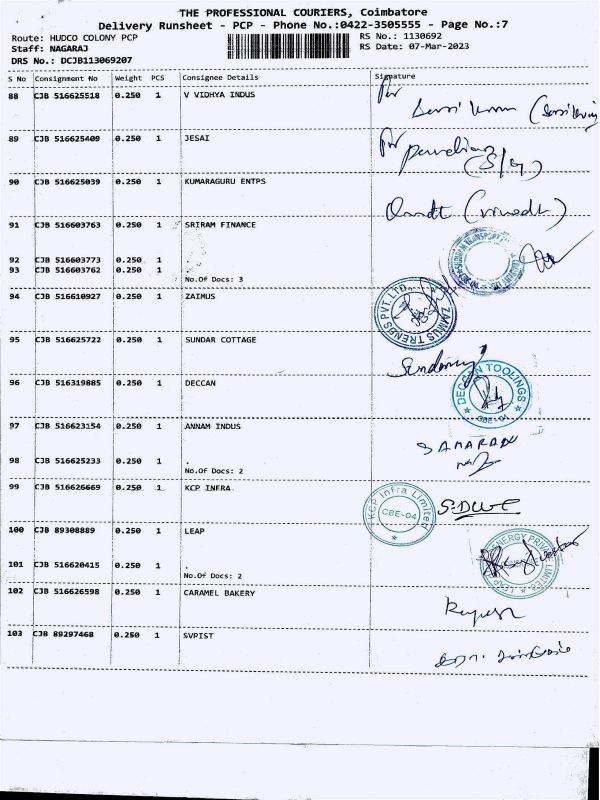 THE PROFESSIONAL COURIERS, Coimbatore
Delivery Runsheet - PCP - Phone No.:0422-3505555 - Page No.:7
Route: HUDCO COLONY PCP
RS No.: 1130692
Staff: NAGARAJ
RS Date: 07-Mar-2023
DRS No.: DCJB113069207
S No Consignment No Weight PCS Consignee Details Signature
88 CJB 516625518 0.250 1 V VIDHYA INDUS
89 CJB 516625409 0.250 1 JESAI
90 CJB 516625039 0.250 1 KUMARAGURU ENTPS
91 CJB 516603763 0.250 1 SRIRAM FINANCE
92 CJB 516603773 0.250 1 .
93 CJB 516603762 0.250 1 .
No.Of Docs: 3
94 CJB 516610927 0.250 1 ZAIMUS
ZAIMUS TRENDS PVT.LTD.
95 CJB 516625722 0.250 1 SUNDAR COTTAGE
96 CJB 516319885 0.250 1 DECCAN
DECCAN TOOLINGS
CBE-04
97 CJB 516623154 0.250 1 ANNAM INDUS
98 CJB 516625233 0.250 1 .
No.Of Docs: 2
99 CJB 516626669 0.250 1 KCP INFRA
KCP Infra Limited
CBE-04
100 CJB 89308889 0.250 1 LEAP
LEAP ENERGY PRIVATE LIMITED
101 CJB 516620415 0.250 1 .
No.Of Docs: 2
102 CJB 516626598 0.250 1 CARAMEL BAKERY
103 CJB 89297468 0.250 1 SVPIST